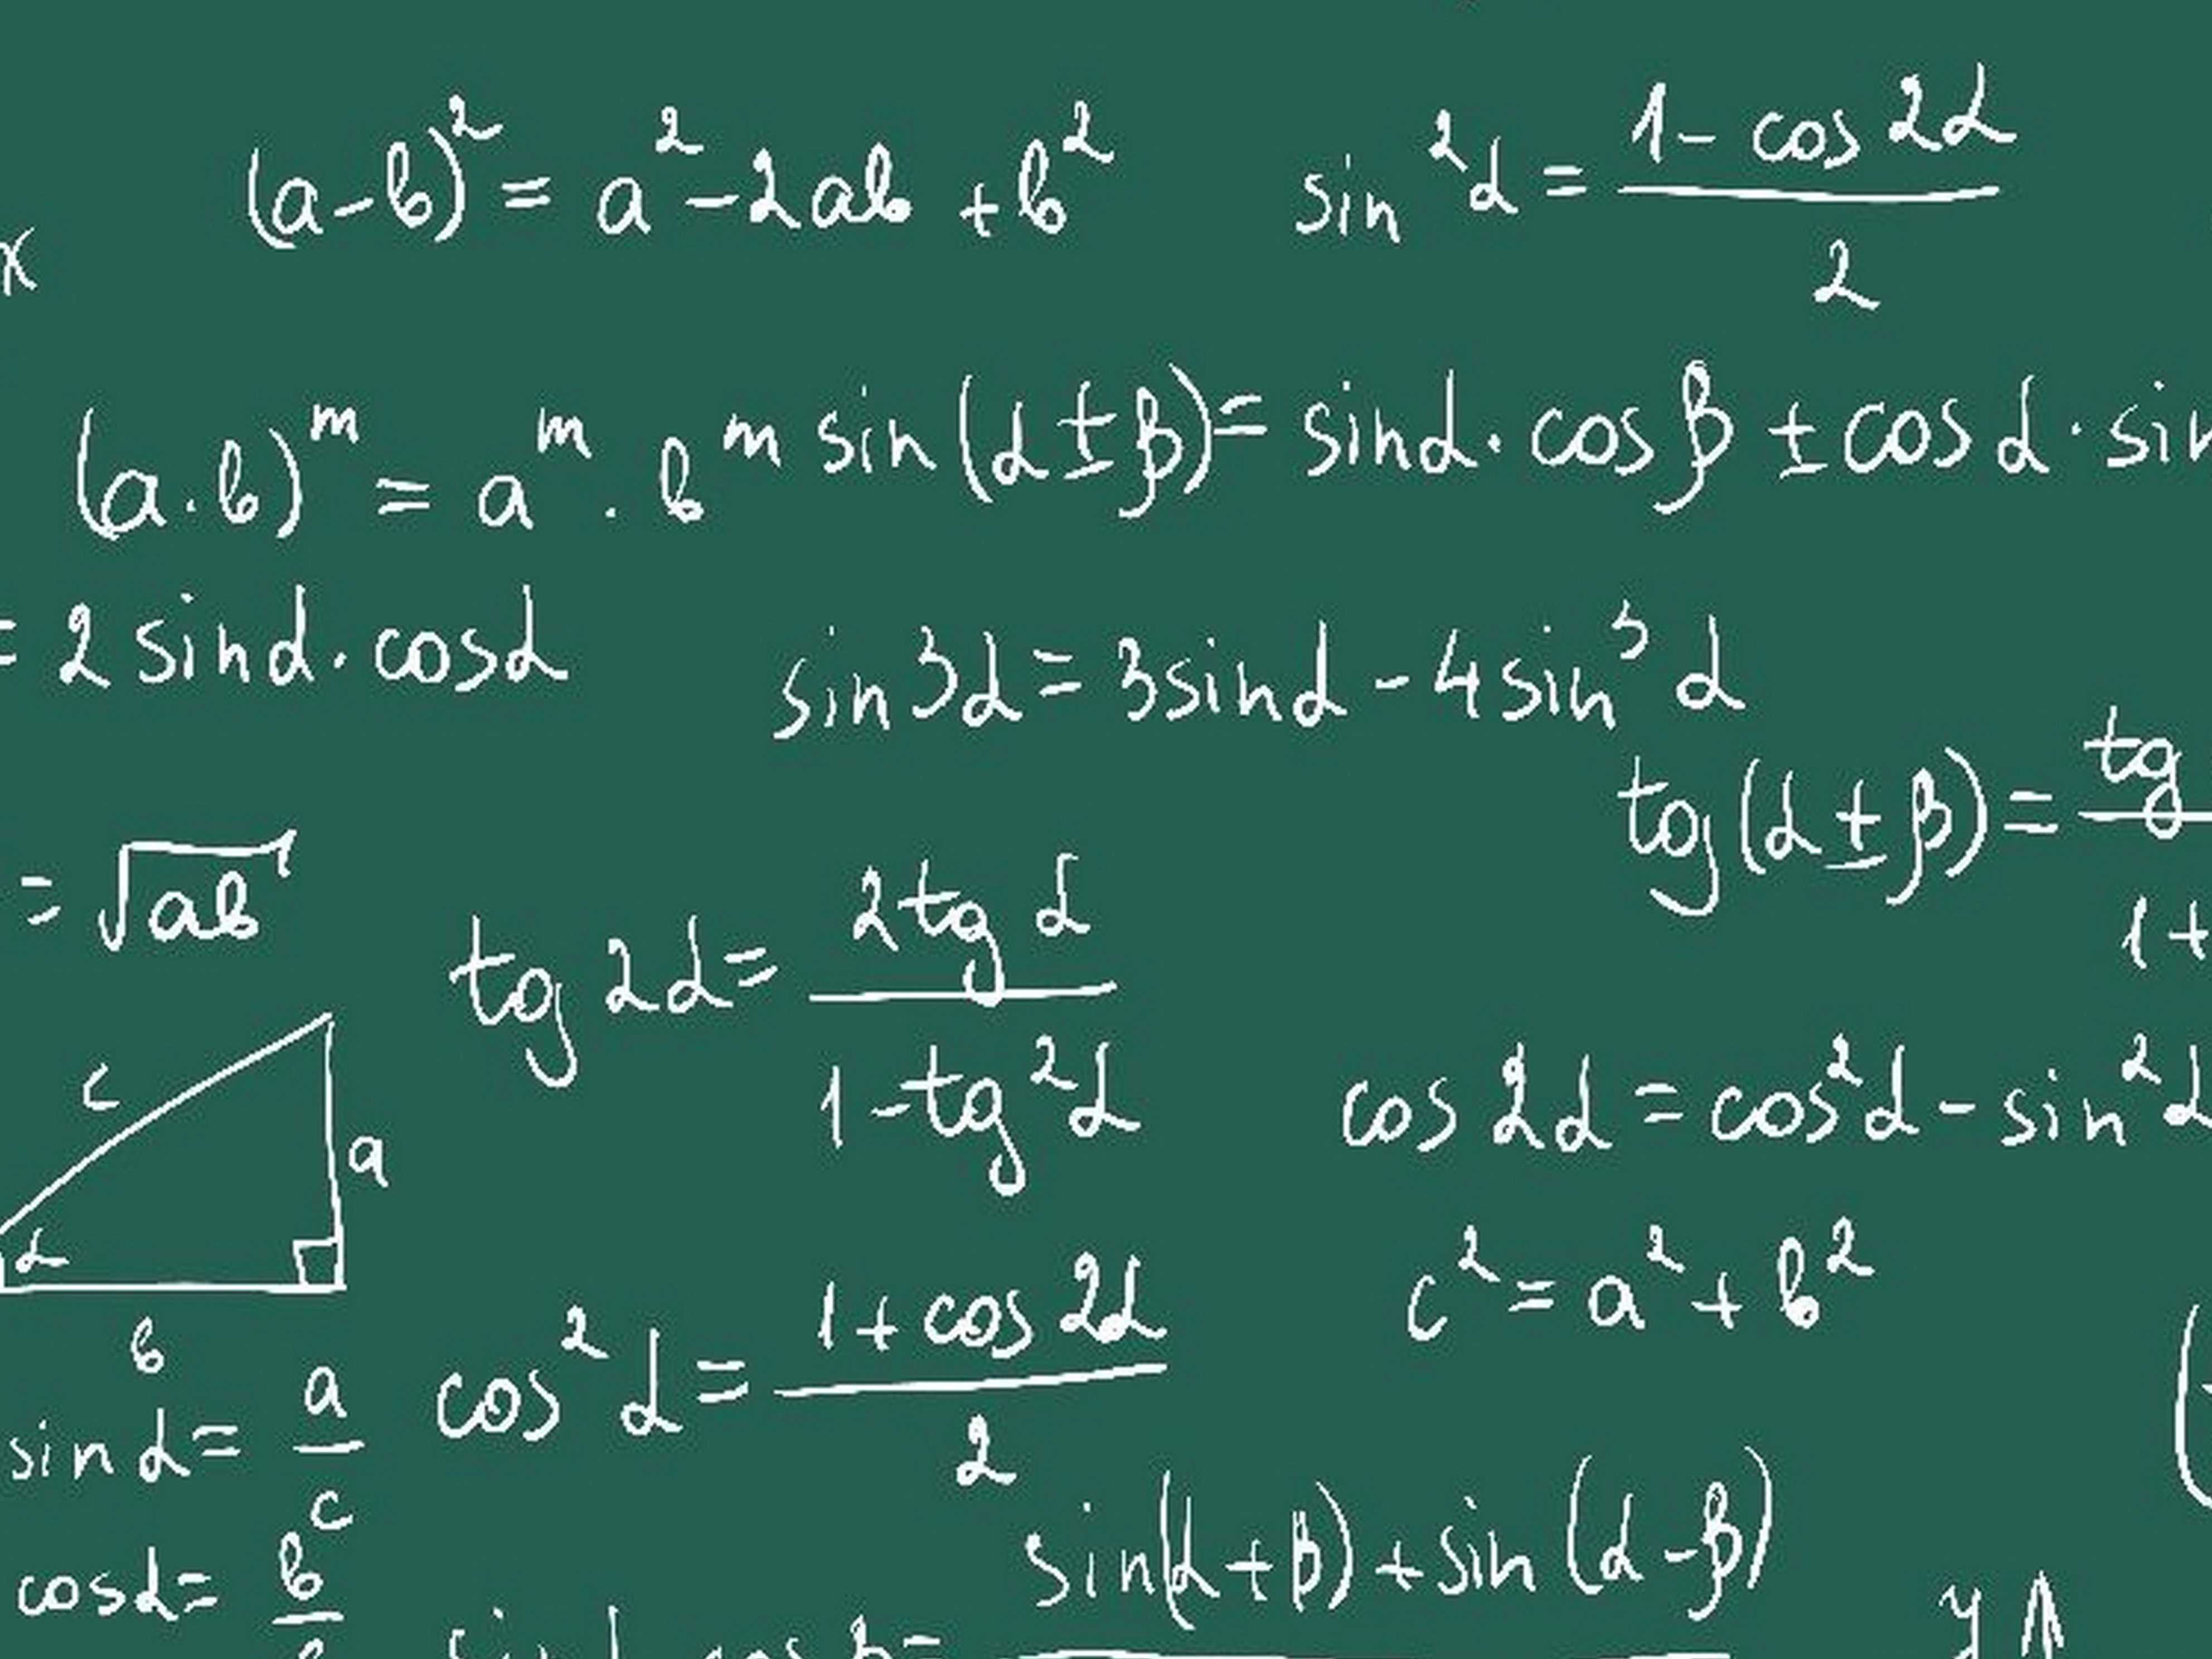 x
(a-b)² = a² - 2ab + b²
sin²α = (1 - cos 2α) / 2
(a·b)ᵐ = aᵐ · bᵐ
sin(α ± β) = sin α · cos β ± cos α · sin
= 2 sin α · cos α
sin 3α = 3 sin α - 4 sin³ α
tg(α ± β) = tg
1 +
= √ab
tg 2α = 2 tg α / (1 - tg² α)
cos 2α = cos²α - sin²α
c
a
α
b
c² = a² + b²
cos² α = (1 + cos 2α) / 2
sin α = a / c
cos α = b /
sin(α + β) + sin(α - β)
y